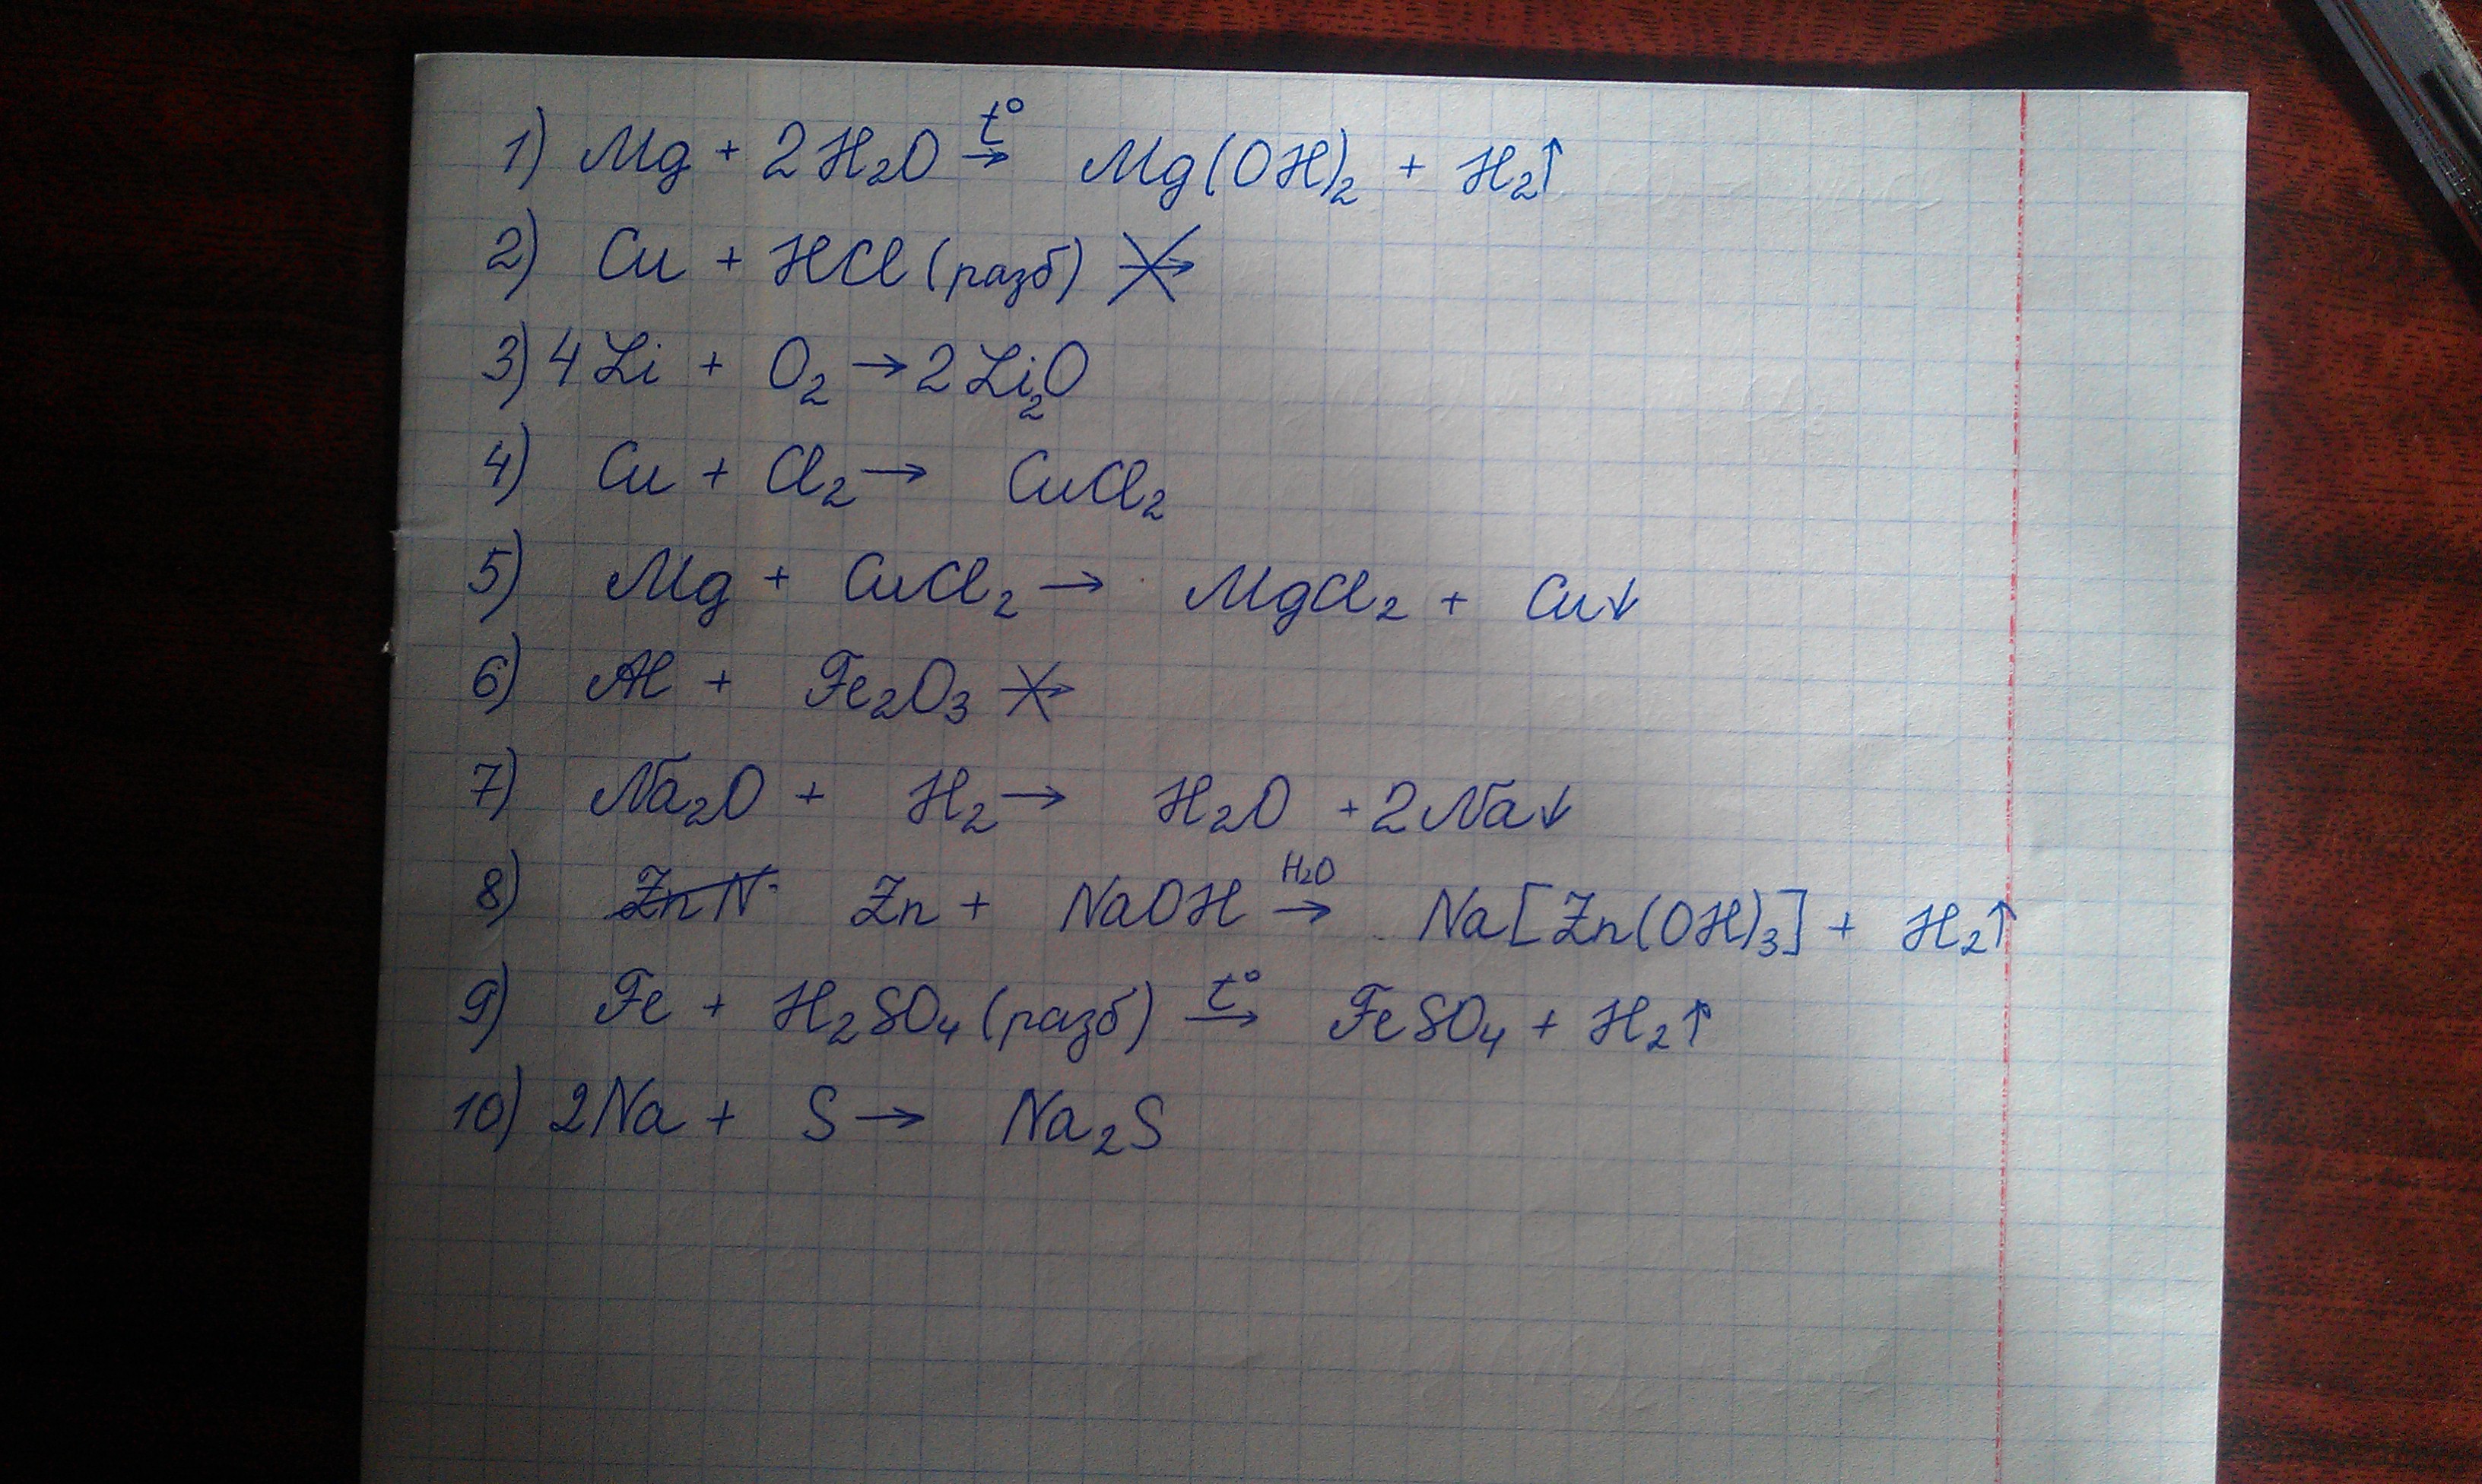 1) Mg + 2H₂O t°→ Mg(OH)₂ + H₂↑
2) Cu + HCl (разб) ↛
3) 4Li + O₂ → 2Li₂O
4) Cu + Cl₂ → CuCl₂
5) Mg + CuCl₂ → MgCl₂ + Cu↓
6) Al + Fe₂O₃ ↛
7) Na₂O + H₂ → H₂O + 2Na↓
8) Zn N Zn + NaOH H₂O→ Na[Zn(OH)₃] + H₂↑
9) Fe + H₂SO₄ (разб) t°→ FeSO₄ + H₂↑
10) 2Na + S → Na₂S